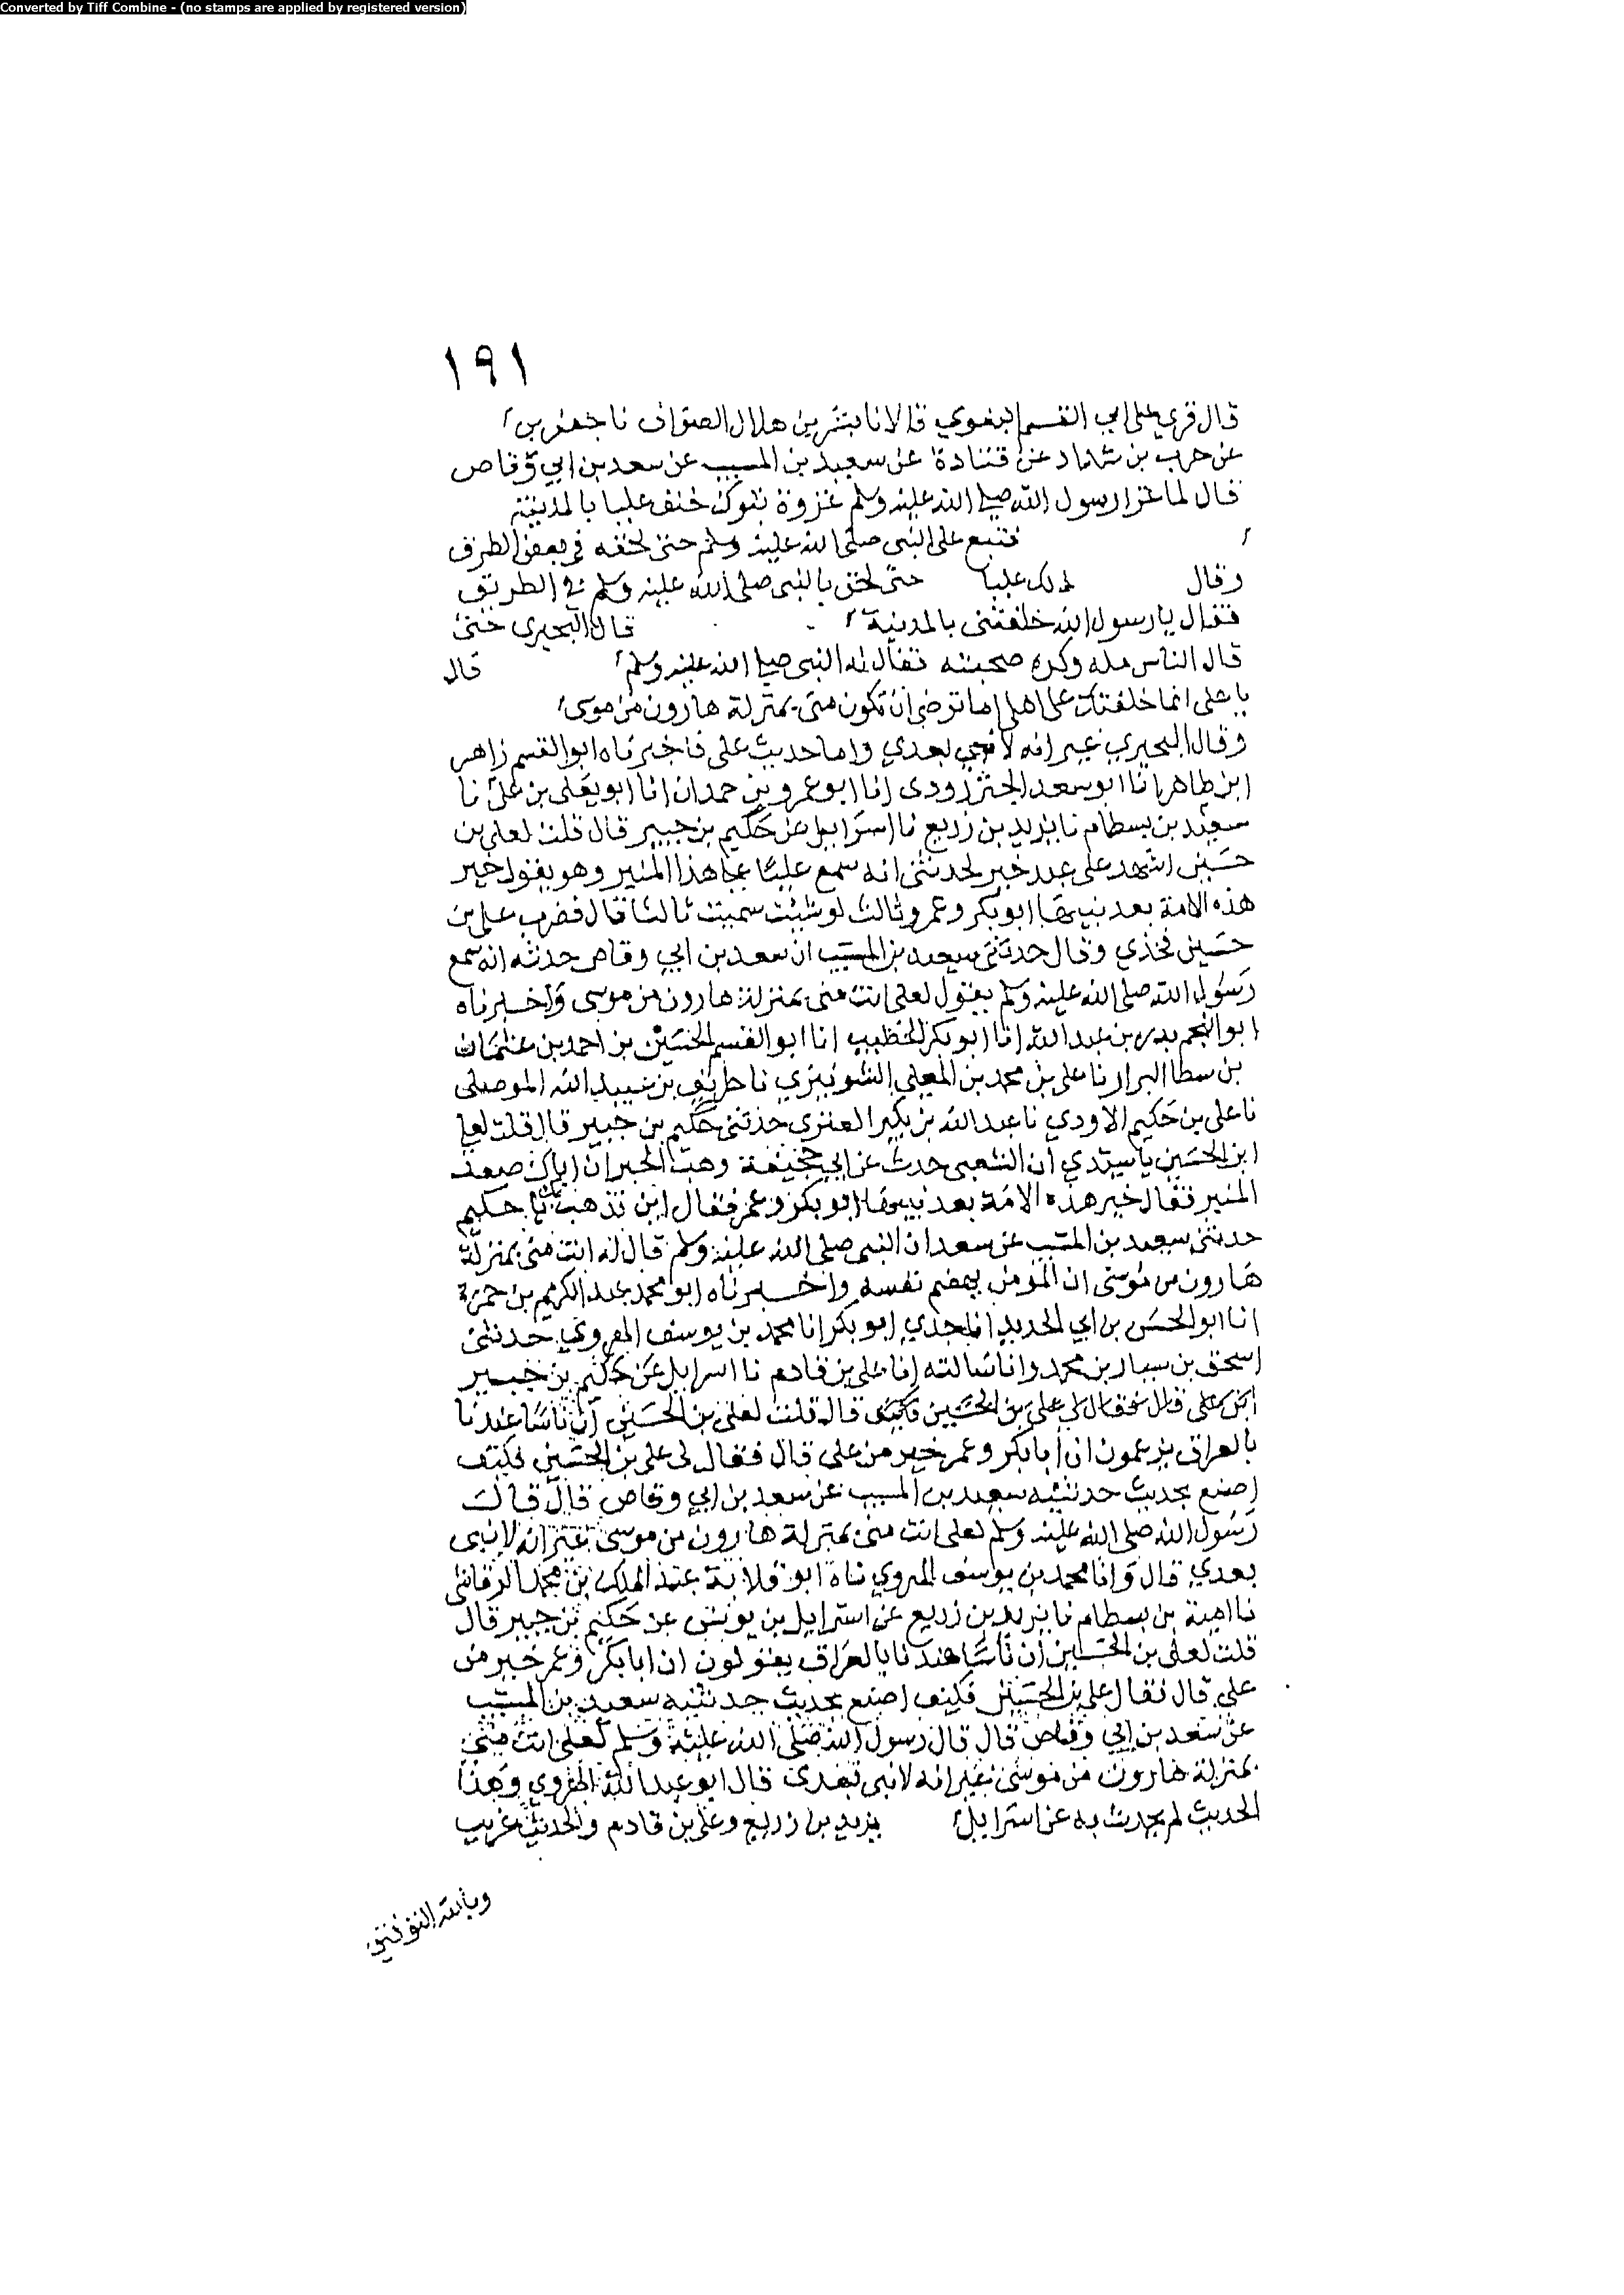 Converted by Tiff Combine - (no stamps are applied by registered version)
١٩١
قال قري على ابي القسم البغوي قالا نا بشر بن هلال الصواف نا جعفر بن
عن حرب بن شداد عن قتادة عن سعيد بن المسيب عن سعد بن ابي وقاص
قال لما غزا رسول الله صلى الله عليه وسلم غزوة تبوك خلف عليا بالمدينة
فتبع على النبى صلى الله عليه وسلم حتى لحقه في بعض الطرق
وقال عليا حتى لحق بالنبى صلى الله عليه وسلم في الطريق
فقال يا رسول الله خلفتنى بالمدينة قال البحيرى حتى
قال الناس مله وكره صحبته فقال له النبى صلى الله عليه وسلم قال
يا على انما خلفتك على اهلى اما ترضى ان تكون منى بمنزلة هارون من موسى
وقال البحيري غير انه لا نبي بعدي واما حديث على فاخبرناه ابو القسم زاهر
ابن طاهر انا ابو سعد الجنزرودى انا ابو عمرو بن حمدان انا ابو يعلى بن على نا
سعيد بن بسطام نا يزيد بن زريع نا اسرايل عن حكيم بن جبير قال قلت لعلى بن
حسين اشهد على عبد خير لحدثنى انه سمع عليا على هذا المنبر وهو يقول خير
هذه الامة بعد نبيها ابو بكر وعمر وثالث لو شيت سميت ثالثا قال فضرب على بن
حسين فخذي وقال حدثنى سعيد بن المسيب ان سعد بن ابي وقاص حدثه انه سمع
رسول الله صلى الله عليه وسلم يقول لعلى انت منى بمنزلة هارون من موسى واخبرناه
ابو النجم بدر بن عبد الله انا ابو بكر الخطيب انا ابو القسم الحسين بن احمد بن عثمان
بن سطا البزار نا على بن محمد بن المعلى الشونيزي نا طريف بن عبيد الله الموصلى
نا على بن حكيم الاودي نا عبد الله بن بكير العنزى حدثنى حكيم بن جبير قال قلت لعلى
ابن الحسين يا سيدي ان الشعبى حدث عن ابي جحيفة وهب الخير ان اباك صعد
المنبر فقال خير هذه الامة بعد نبيها ابو بكر وعمر فقال اين تذهب يا حكيم
حدثنى سعيد بن المسيب عن سعد ان النبى صلى الله عليه وسلم قال له انت منى بمنزلة
هارون من موسى ان المومن يهضم نفسه واخبرناه ابو محمد عبد الكريم بن حمزة
انا ابو الحسن بن ابي الحديد انا جدي ابو بكر انا محمد بن يوسف الهروي حدثنى
اسحق بن سيار بن محمد وانا سالته انا على بن قادم نا اسرايل عن حكيم بن جبير
قال فقال لى على بن الحسين فكيف قال قلت لعلى بن الحسين ان ناسا عندنا
بالعراق يزعمون ان ابا بكر وعمر خير من على قال فقال لى على بن الحسين فكيف
اصنع بحديث حدثنيه سعيد بن المسيب عن سعد بن ابي وقاص قال قال
رسول الله صلى الله عليه وسلم لعلى انت منى بمنزلة هارون من موسى غير انه لا نبى
بعدي قال وانا محمد بن يوسف الهروي ناه ابو قلابة عبد الملك بن محمد الرقاشى
نا امية بن بسطام نا يزيد بن زريع عن اسرايل بن يونس عن حكيم بن جبير قال
قلت لعلى بن الحسين ان ناسا عندنا بالعراق يقولون ان ابا بكر وعمر خير من
على قال فقال على بن الحسين فكيف اصنع بحديث حدثنيه سعيد بن المسيب
عن سعد بن ابي وقاص قال قال رسول الله صلى الله عليه وسلم لعلى انت منى
بمنزلة هارون من موسى غير انه لا نبى بعدى قال ابو عبد الله الهروي وهذا
الحديث لم يحدث به عن اسرايل يزيد بن زريع وعلى بن قادم والحديث غريب
وبالله التوفيق